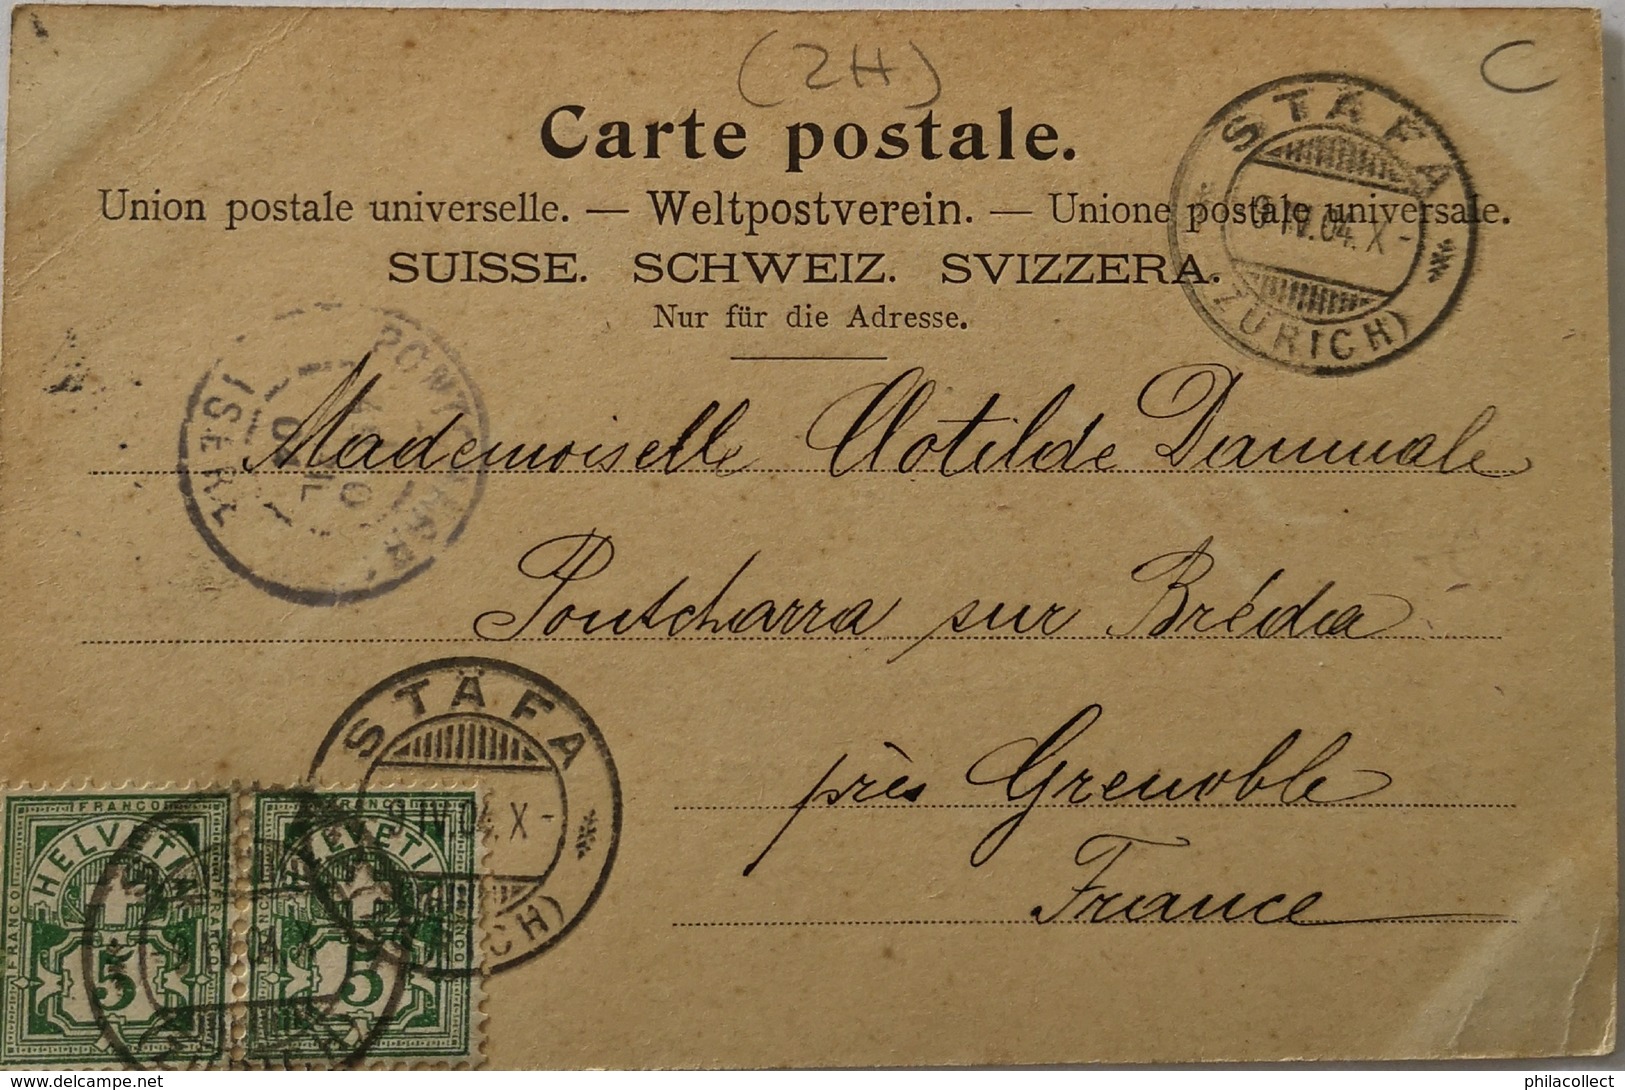 (2H)
C
Carte postale.
Union postale universelle. — Weltpostverein. — Unione postale universale.
SUISSE. SCHWEIZ. SVIZZERA.
Nur für die Adresse.
STÄFA
9 IV.04. X -
(ZÜRICH)
ISERE
Mademoiselle Clotilde Dammale
Pontcharra sur Bréda
près Grenoble
France
STÄFA
9 IV.04. X -
FRANCO
HELVETIA
FRANCO
FRANCO
5
FRANCO
HELVETIA
FRANCO
5
philacollect
delcampe.net